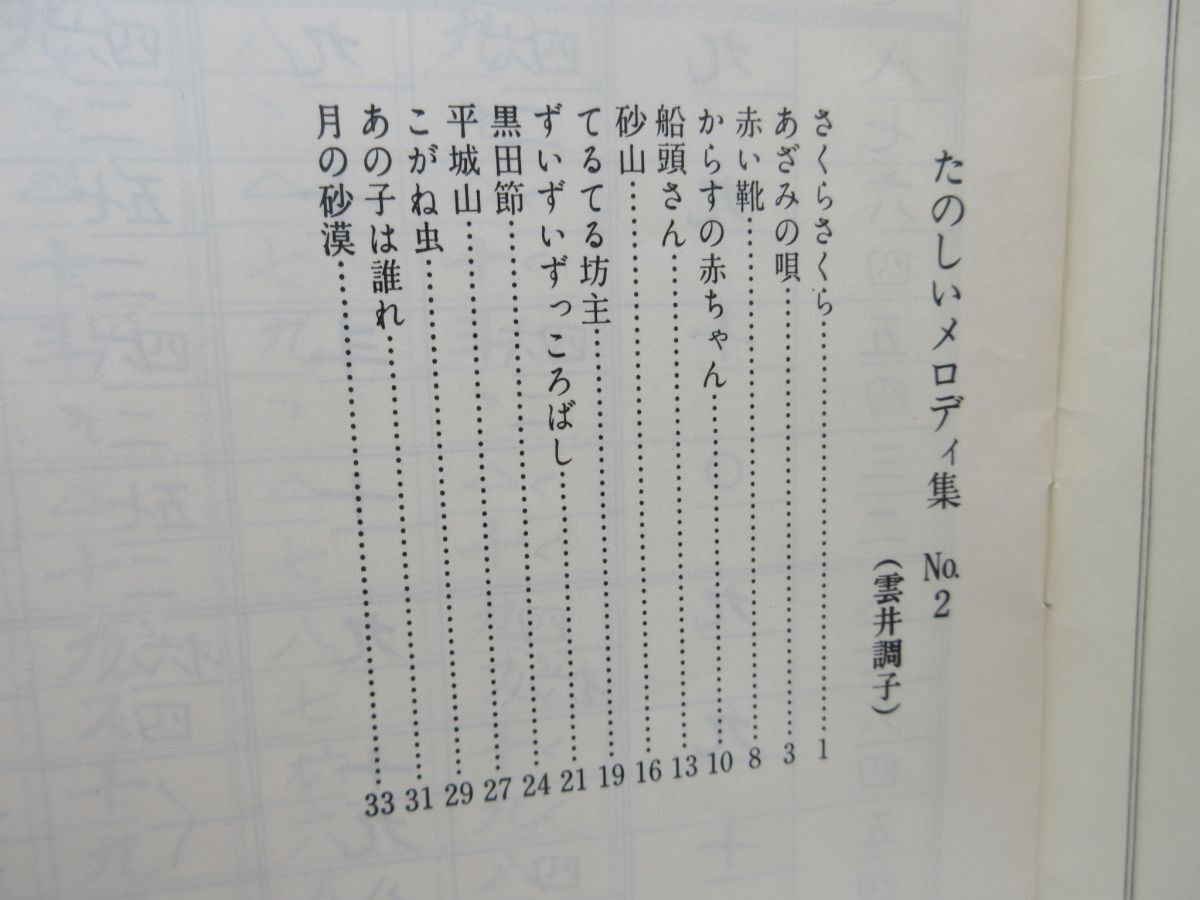 たのしいメロディ集 No.2
(雲井調子)
さくらさくら……1
あざみの唄……3
赤い靴……8
からすの赤ちゃん……10
船頭さん……13
砂山……16
てるてる坊主……19
ずいずいずっころばし……21
黒田節……24
平城山……27
こがね虫……29
あの子は誰れ……31
月の砂漠……33